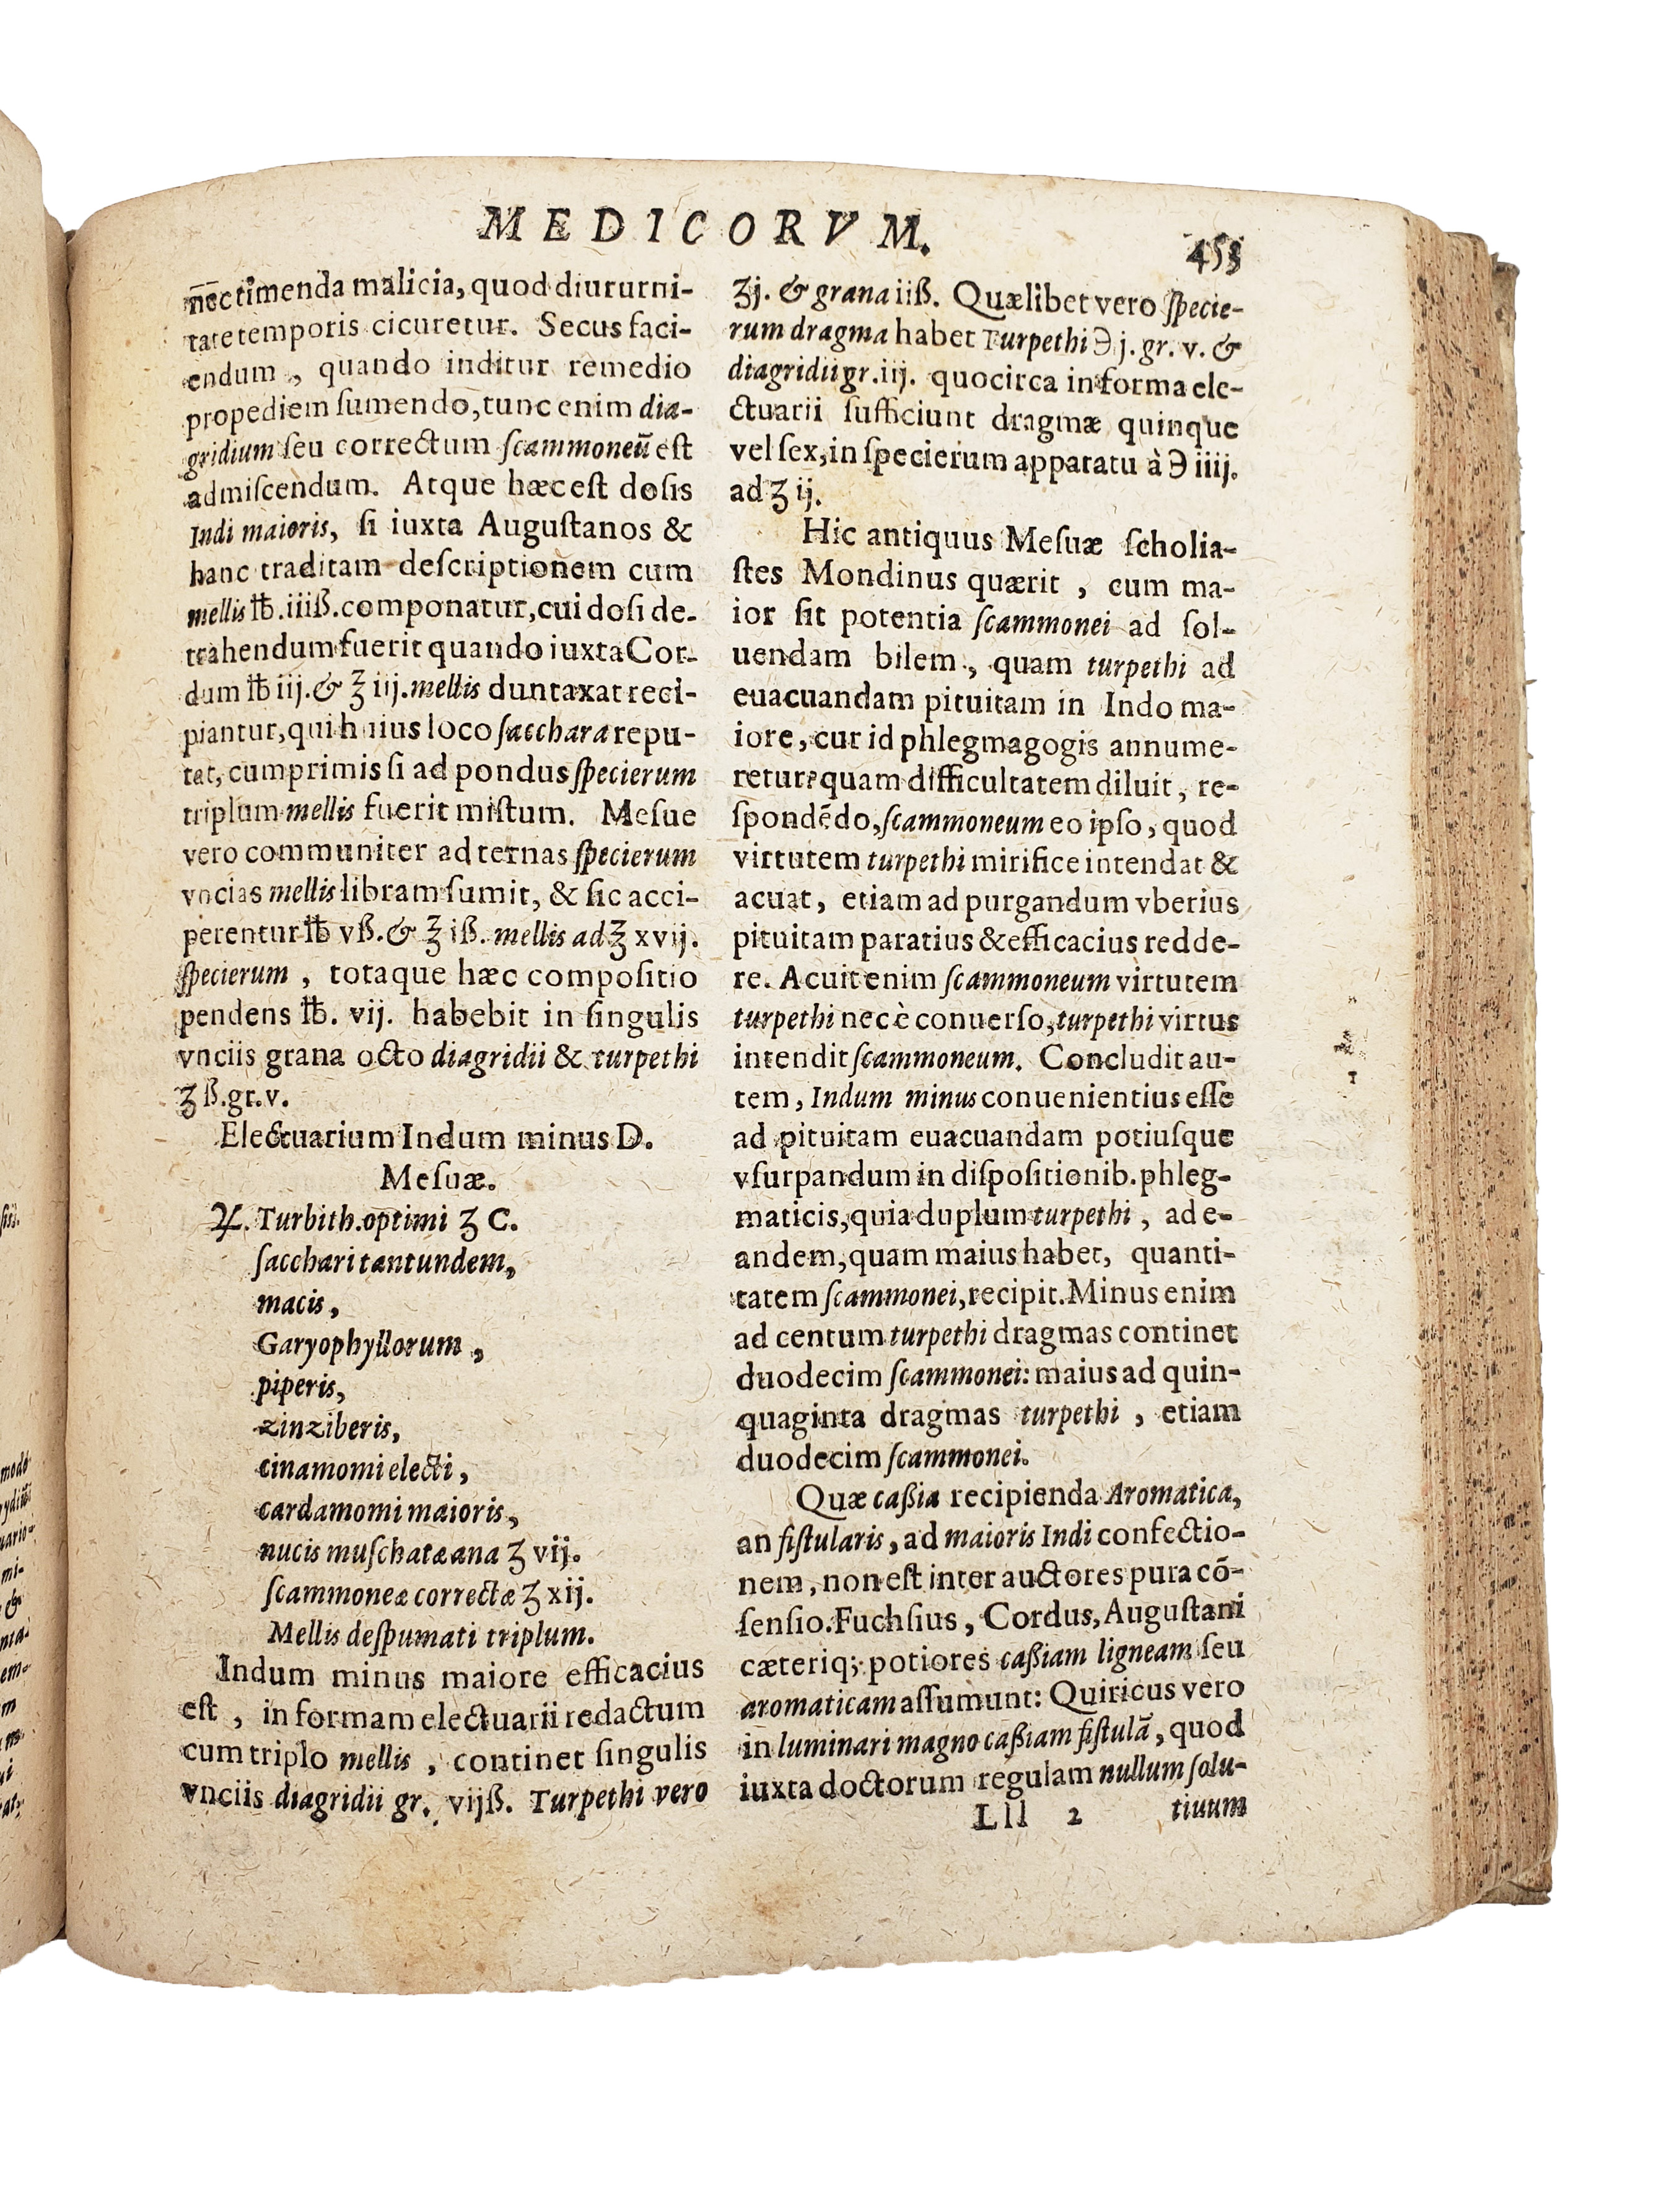 MEDICORVM.
453
nēc timenda malicia, quod diuturni-
tate temporis cicuretur. Secus faci-
endum, quando inditur remedio
propediem ſumendo, tunc enim dia-
gridium ſeu correctum ſcammoneū eſt
admiſcendum. Atque hæc eſt doſis
Indi maioris, ſi iuxta Auguſtanos &
hanc traditam deſcriptionem cum
mellis ℔. iiiß. componatur, cui doſi de-
trahendum fuerit quando iuxta Cor-
dum ℔ iij. & ℥ iij. mellis duntaxat reci-
piantur, qui huius loco ſacchara repu-
tat, cumprimis ſi ad pondus ſpecierum
triplum mellis fuerit miſtum. Meſue
vero communiter ad ternas ſpecierum
vncias mellis libram ſumit, & ſic acci-
perentur ℔ vß. & ℥ iß. mellis ad ℥ xvij.
ſpecierum, totaque hæc compoſitio
pendens ℔. vij. habebit in ſingulis
vnciis grana octo diagridii & turpethi
ʒ ß. gr. v.
Electuarium Indum minus D.
Meſuæ.
♃. Turbith. optimi ʒ C.
ſacchari tantundem,
macis,
Garyophyllorum,
piperis,
zinziberis,
cinamomi electi,
cardamomi maioris,
nucis muſchatæ ana ʒ vij.
ſcammoneæ correctæ ʒ xij.
Mellis deſpumati triplum.
Indum minus maiore efficacius
eſt, in formam electuarii redactum
cum triplo mellis, continet ſingulis
vnciis diagridii gr. vijß. Turpethi vero
ʒj. & grana iiß. Quælibet vero ſpecie-
rum dragma habet Turpethi ℈ j. gr. v. &
diagridii gr. iij. quocirca in forma ele-
ctuarii ſufficiunt dragmæ quinque
vel ſex, in ſpecierum apparatu à ℈ iiij.
ad ʒ ij.
Hic antiquus Meſuæ ſcholia-
ſtes Mondinus quærit, cum ma-
ior ſit potentia ſcammonei ad ſol-
uendam bilem, quam turpethi ad
euacuandam pituitam in Indo ma-
iore, cur id phlegmagogis annume-
retur? quam difficultatem diluit, re-
ſpondēdo, ſcammoneum eo ipſo, quod
virtutem turpethi mirifice intendat &
acuat, etiam ad purgandum vberius
pituitam paratius & efficacius redde-
re. Acuit enim ſcammoneum virtutem
turpethi nec è conuerſo, turpethi virtus
intendit ſcammoneum. Concludit au-
tem, Indum minus conuenientius eſſe
ad pituitam euacuandam potiuſque
vſurpandum in diſpoſitionib. phleg-
maticis, quia duplum turpethi, ad e-
andem, quam maius habet, quanti-
tatem ſcammonei, recipit. Minus enim
ad centum turpethi dragmas continet
duodecim ſcammonei: maius ad quin-
quaginta dragmas turpethi, etiam
duodecim ſcammonei.
Quæ caßia recipienda Aromatica,
an fiſtularis, ad maioris Indi confectio-
nem, non eſt inter auctores pura cō-
ſenſio. Fuchſius, Cordus, Auguſtani
cæteriq; potiores caßiam ligneam ſeu
aromaticam aſſumunt: Quiricus vero
in luminari magno caßiam fiſtulā, quod
iuxta doctorum regulam nullum ſolu-
Lll 2 tiuum